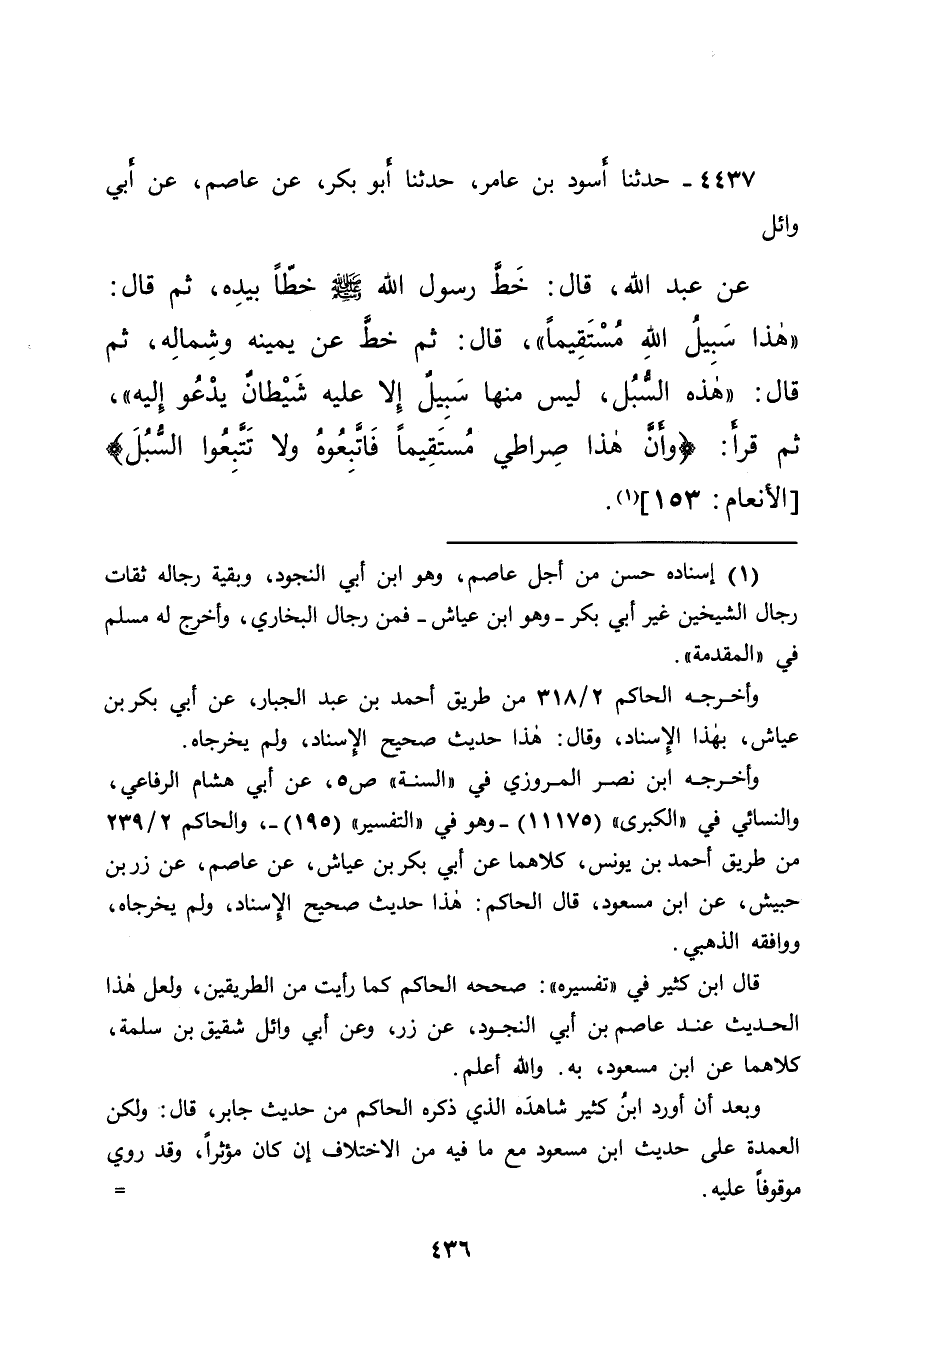 ٤٤٣٧ ـ حدثنا أَسود بن عامر، حدثنا أَبو بكر، عن عاصم، عن أَبي
وائل
عن عبد الله، قال: خَطَّ رسول الله ﷺ خطّاً بيدِه، ثم قال:
«هٰذا سَبِيلُ اللهِ مُسْتَقِيماً»، قال: ثم خطَّ عن يمينه وشِمالِه، ثم
قال: «هٰذه السُّبُل، ليس منها سَبِيلٌ إِلا عليه شَيْطانٌ يدْعُو إِليه»،
ثم قرأَ: ﴿وأَنَّ هٰذا صِراطي مُستَقِيماً فَاتَّبِعُوهُ ولا تَتَّبِعُوا السُّبُلَ﴾
[الأنعام: ١٥٣](١).
(١) إسناده حسن من أجل عاصم، وهو ابن أبي النجود، وبقية رجاله ثقات
رجال الشيخين غير أبي بكر ـ وهو ابن عياش ـ فمن رجال البخاري، وأخرج له مسلم
في «المقدمة».
وأخرجه الحاكم ٣١٨/٢ من طريق أحمد بن عبد الجبار، عن أبي بكر بن
عياش، بهٰذا الإِسناد، وقال: هٰذا حديث صحيح الإِسناد، ولم يخرجاه.
وأخرجه ابن نصر المروزي في «السنة» ص٥، عن أبي هشام الرفاعي،
والنسائي في «الكبرى» (١١١٧٥) ـ وهو في «التفسير» (١٩٥) ـ، والحاكم ٢٣٩/٢
من طريق أحمد بن يونس، كلاهما عن أبي بكر بن عياش، عن عاصم، عن زر بن
حبيش، عن ابن مسعود، قال الحاكم: هٰذا حديث صحيح الإِسناد، ولم يخرجاه،
ووافقه الذهبي.
قال ابن كثير في «تفسيره»: صححه الحاكم كما رأيت من الطريقين، ولعل هٰذا
الحديث عند عاصم بن أبي النجود، عن زر، وعن أبي وائل شقيق بن سلمة،
كلاهما عن ابن مسعود، به. والله أعلم.
وبعد أن أورد ابنُ كثير شاهدَه الذي ذكره الحاكم من حديث جابر، قال: ولكن
العمدة على حديث ابن مسعود مع ما فيه من الاختلاف إن كان مؤثراً، وقد روي
موقوفاً عليه. =
٤٣٦